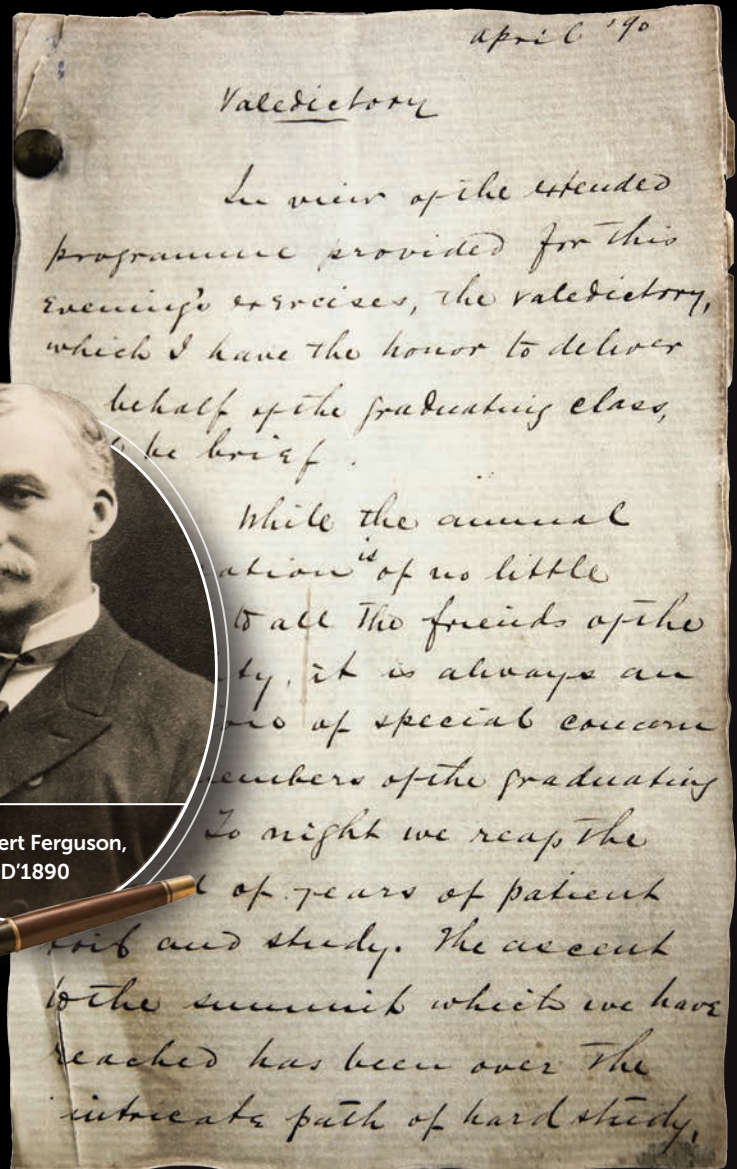 april '90
Valedictory
In view of the extended
programme provided for this
evening's exercises, the valedictory,
which I have the honor to deliver
behalf of the graduating class,
be brief.
While the annual
ation is of no little
to all the friends of the
ty, it is always an
one of special concern
members of the graduating
To night we reap the
of years of patient
toil and study. The ascent
to the summit which we have
reached has been over the
intricate path of hard study,
ert Ferguson,
D'1890